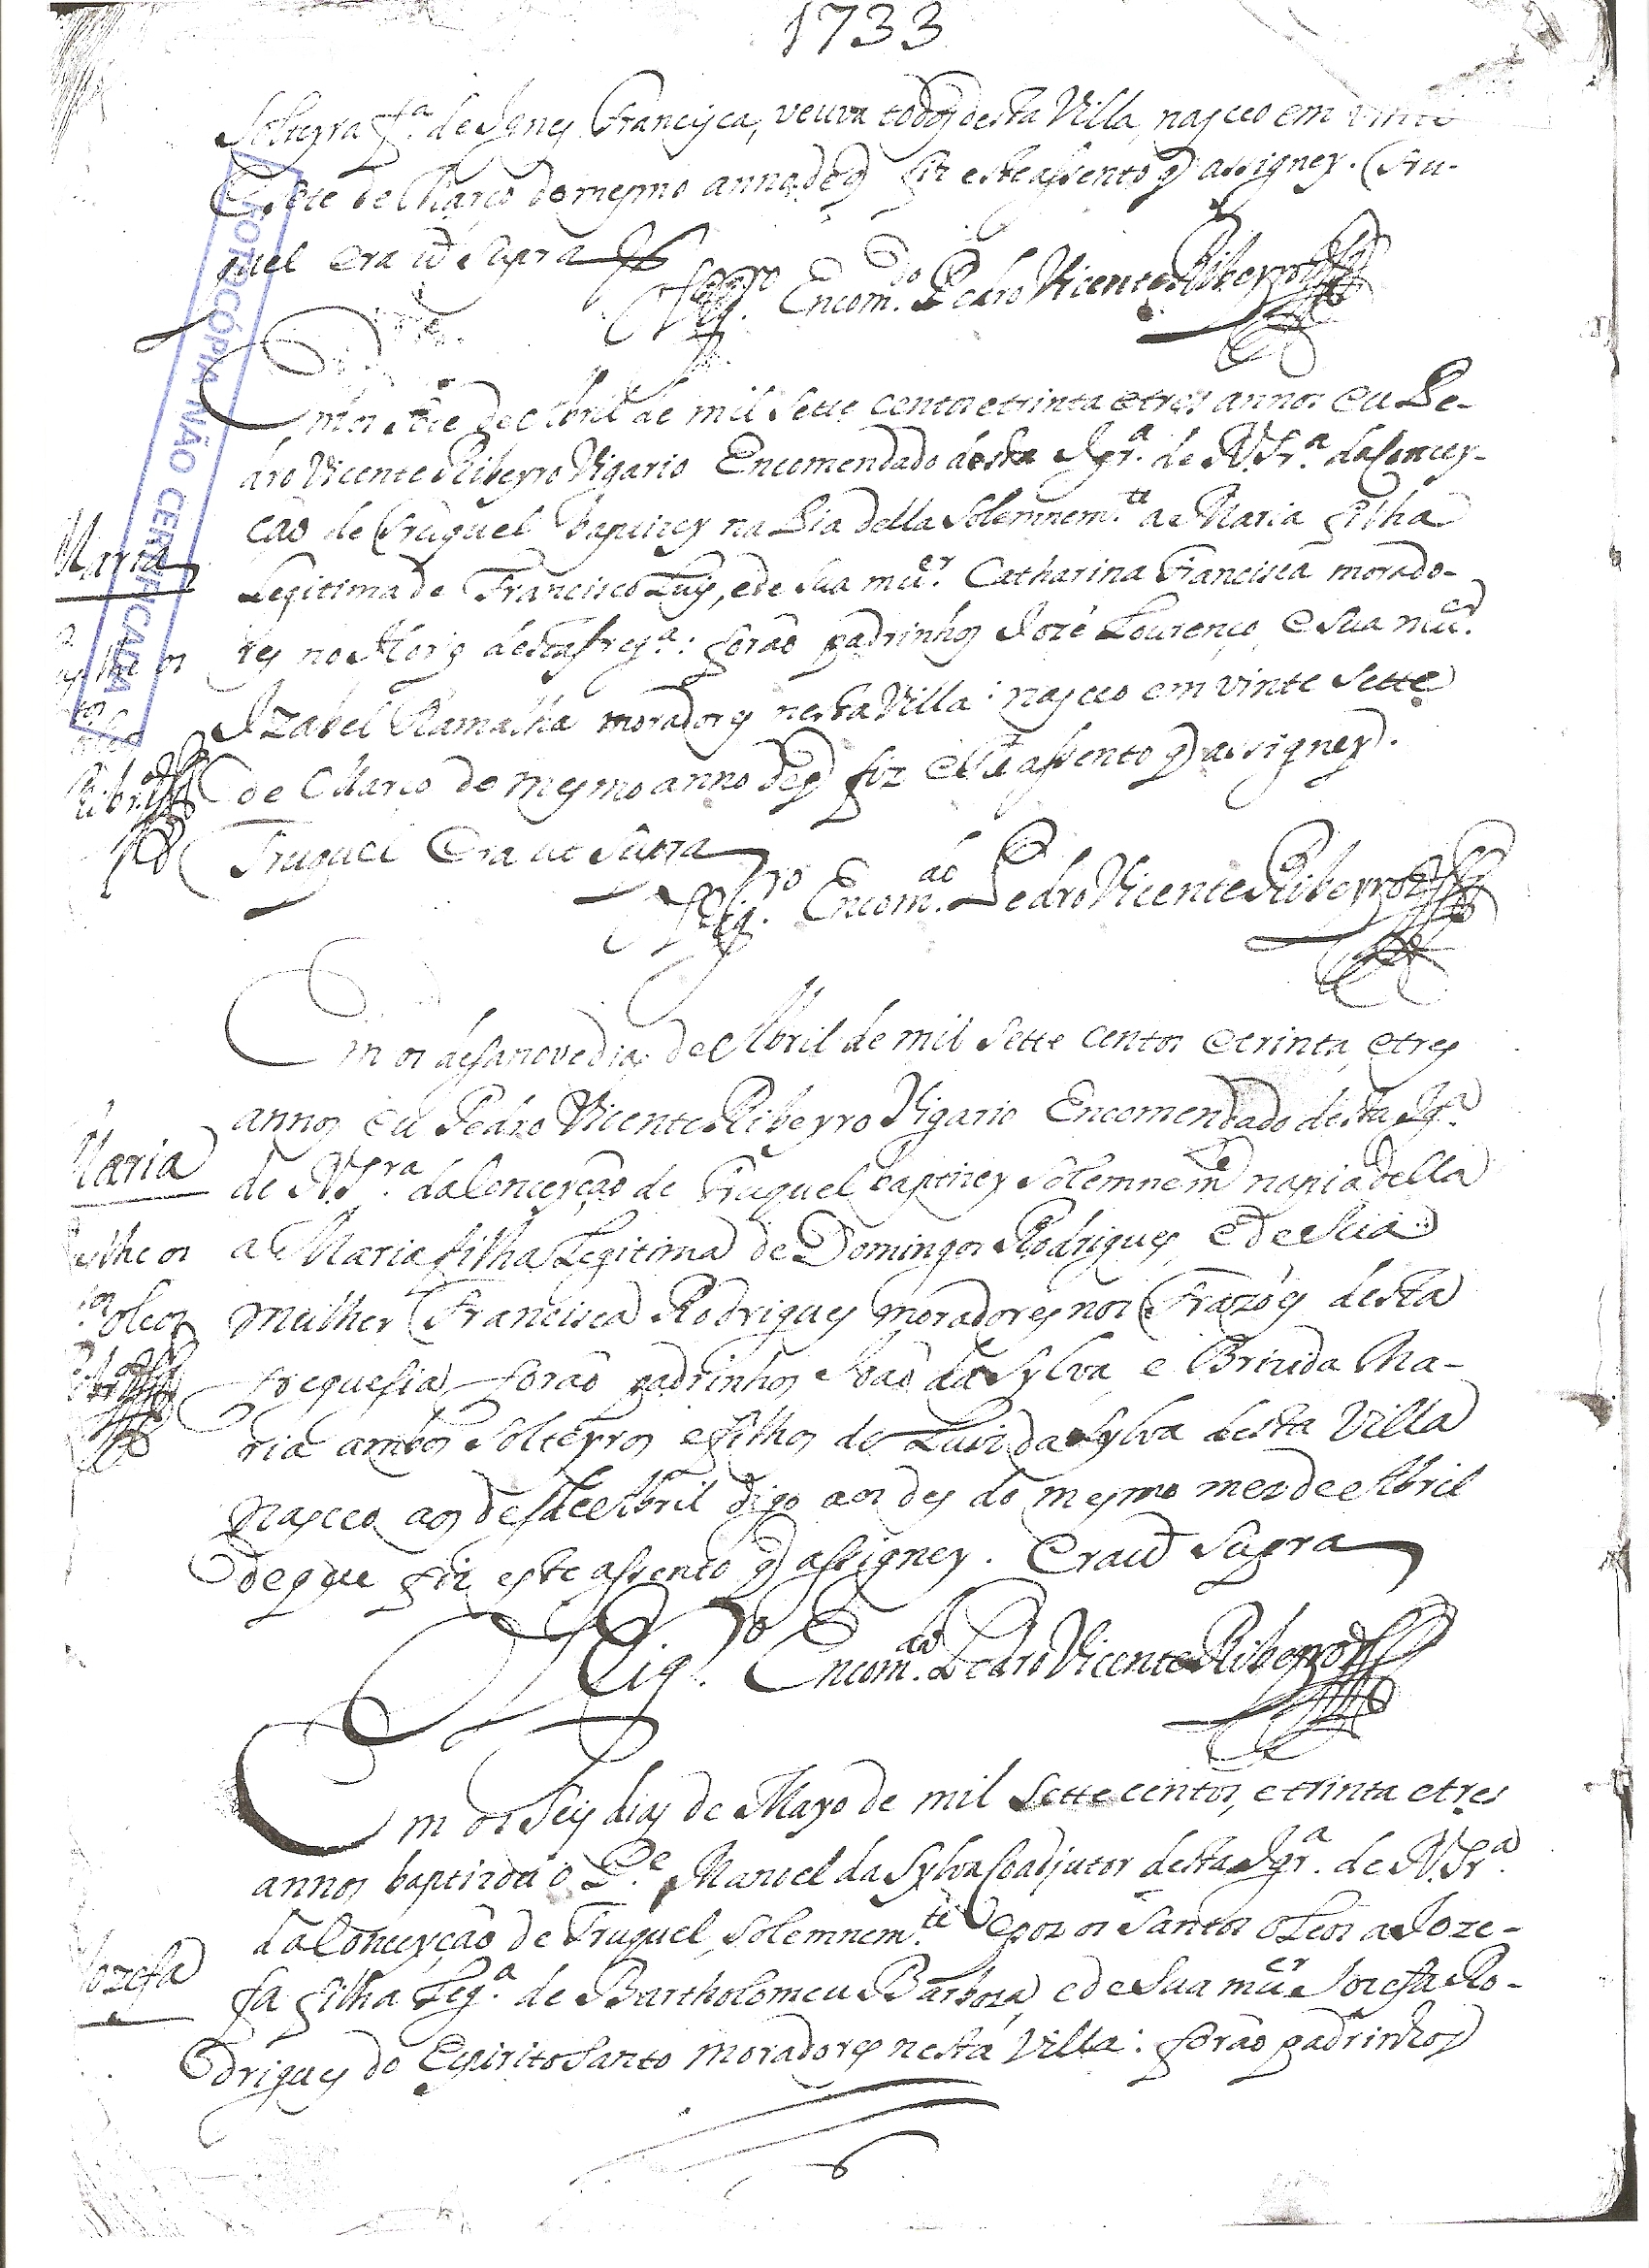 1733
Solteyra fª. de Ignes Francisca, veuva todos desta Villa, nasceo em vinte
e sete de Março do mesmo anno, de q̃ fiz este assento q̃ assigney. Tru-
quel era ut supra
Vigrº. Encomdo. Pedro Vicente Ribeyro
Em os sete de Abril de mil sette centos e trinta e tres annos eu Pe-
dro Vicente Ribeyro Vigario Encomendado desta Igrª. de N. Srª. da Concey-
ção de Truquel baptizey na Pia della Solemnemte. a Maria filha
Maria
Legitima de Francisco Luis, e de sua muer. Catharina Francisca morado-
res no desta fregª: forão padrinhos Jozé Lourenço, e sua muer.
Izabel Ramalha moradores nesta Villa: nasceo em vinte sette
de Março do mesmo anno de q̃ fiz este assento q̃ assigney.
Ribrº
Truquel Era ut Supra
Vigrº. Encomdo. Pedro Vicente Ribeyro
Em os desanove dias de Abril de mil sette centos e trinta, e tres
annos eu Pedro Vicente Ribeyro Vigario Encomendado desta Igª.
Maria
de N. Sra. da Conceyção de Truquel baptizey Solemnemte na pia della
a Maria filha Legitima de Domingos Rodrigues, e de sua
puslhe os
stos oleos
mulher Francisca Rodrigues moradores nos Frazões desta
freguesia forão padrinhos João da Sylva e Brizida Ma-
ria ambos Solteyros e filhos de Luis da Sylva desta Villa
Nasceo aos des de Abril digo aos des do mesmo mes de Abril
de que fiz este assento q̃ assigney. Era ut Supra
Vigrº. Encomdo. Pedro Vicente Ribeyro
Em os Seis dias de Mayo de mil sette centos, e trinta e tres
annos baptizou o Pe. Manoel da Sylva Coadjutor desta Igrª. de N. Srª.
da Conceyção de Truquel, Solemnemte. e poz os Santos oleos a Joze-
Jozefa
fa filha Legª. de Bartholomeu Barboza e de sua muer Jozefa Ro-
drigues do Espirito Santo moradores nesta Villa: forão padrinhos
FOTOCÓPIA NÃO CERTIFICADA